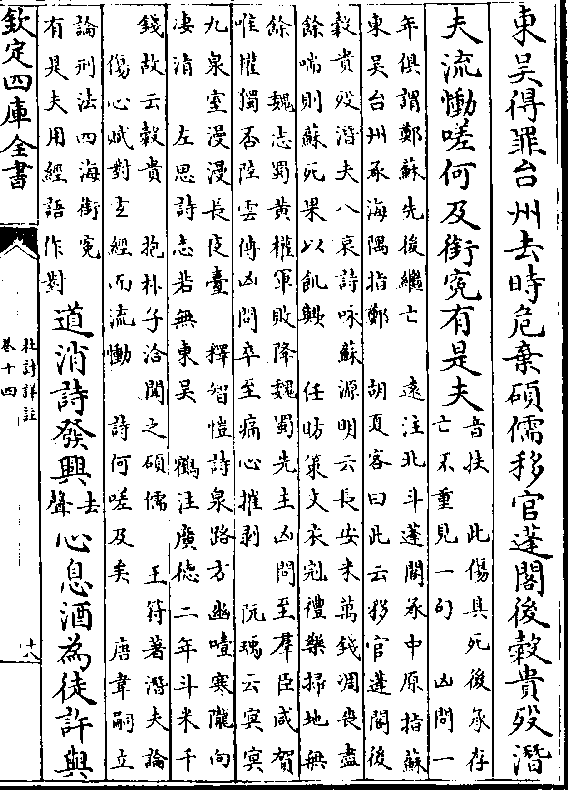 東吳得罪台州去時危棄碩儒移官蓬閣後穀貴殁潛
夫流慟嗟何及銜冤有是夫
音扶 此傷其死後承存
亡不重見一句 凶問一
年俱謂鄭蘇先後繼亡 遠注北斗蓬閣承中原指蘇
東吳台州承海隅指鄭 胡夏客曰此云移官蓬閣後
穀貴殁潛夫八哀詩咏蘇源明云長安米萬錢凋喪盡
餘喘則蘇死果以飢歟 任昉策文衣冠禮樂掃地無
餘 魏志蜀黄權軍敗降魏蜀先主凶問至羣臣咸賀
唯權獨否陸雲傳凶問卒至痛心摧剥 阮瑀云冥冥
九泉室漫漫長夜臺 釋智愷詩泉路方幽噎寒隴向
淒清 左思詩志若無東吳 鶴注廣德二年斗米千
錢故云穀貴 抱朴子洽聞之碩儒 王符著潛夫論
傷心賦對玄經而流慟 詩何嗟及矣 唐韋嗣立
論刑法四海銜冤
有是夫用經語作對
道消詩發興
去
聲
心息酒為徒許與
欽定四庫全書
杜詩詳註
卷十四
十八